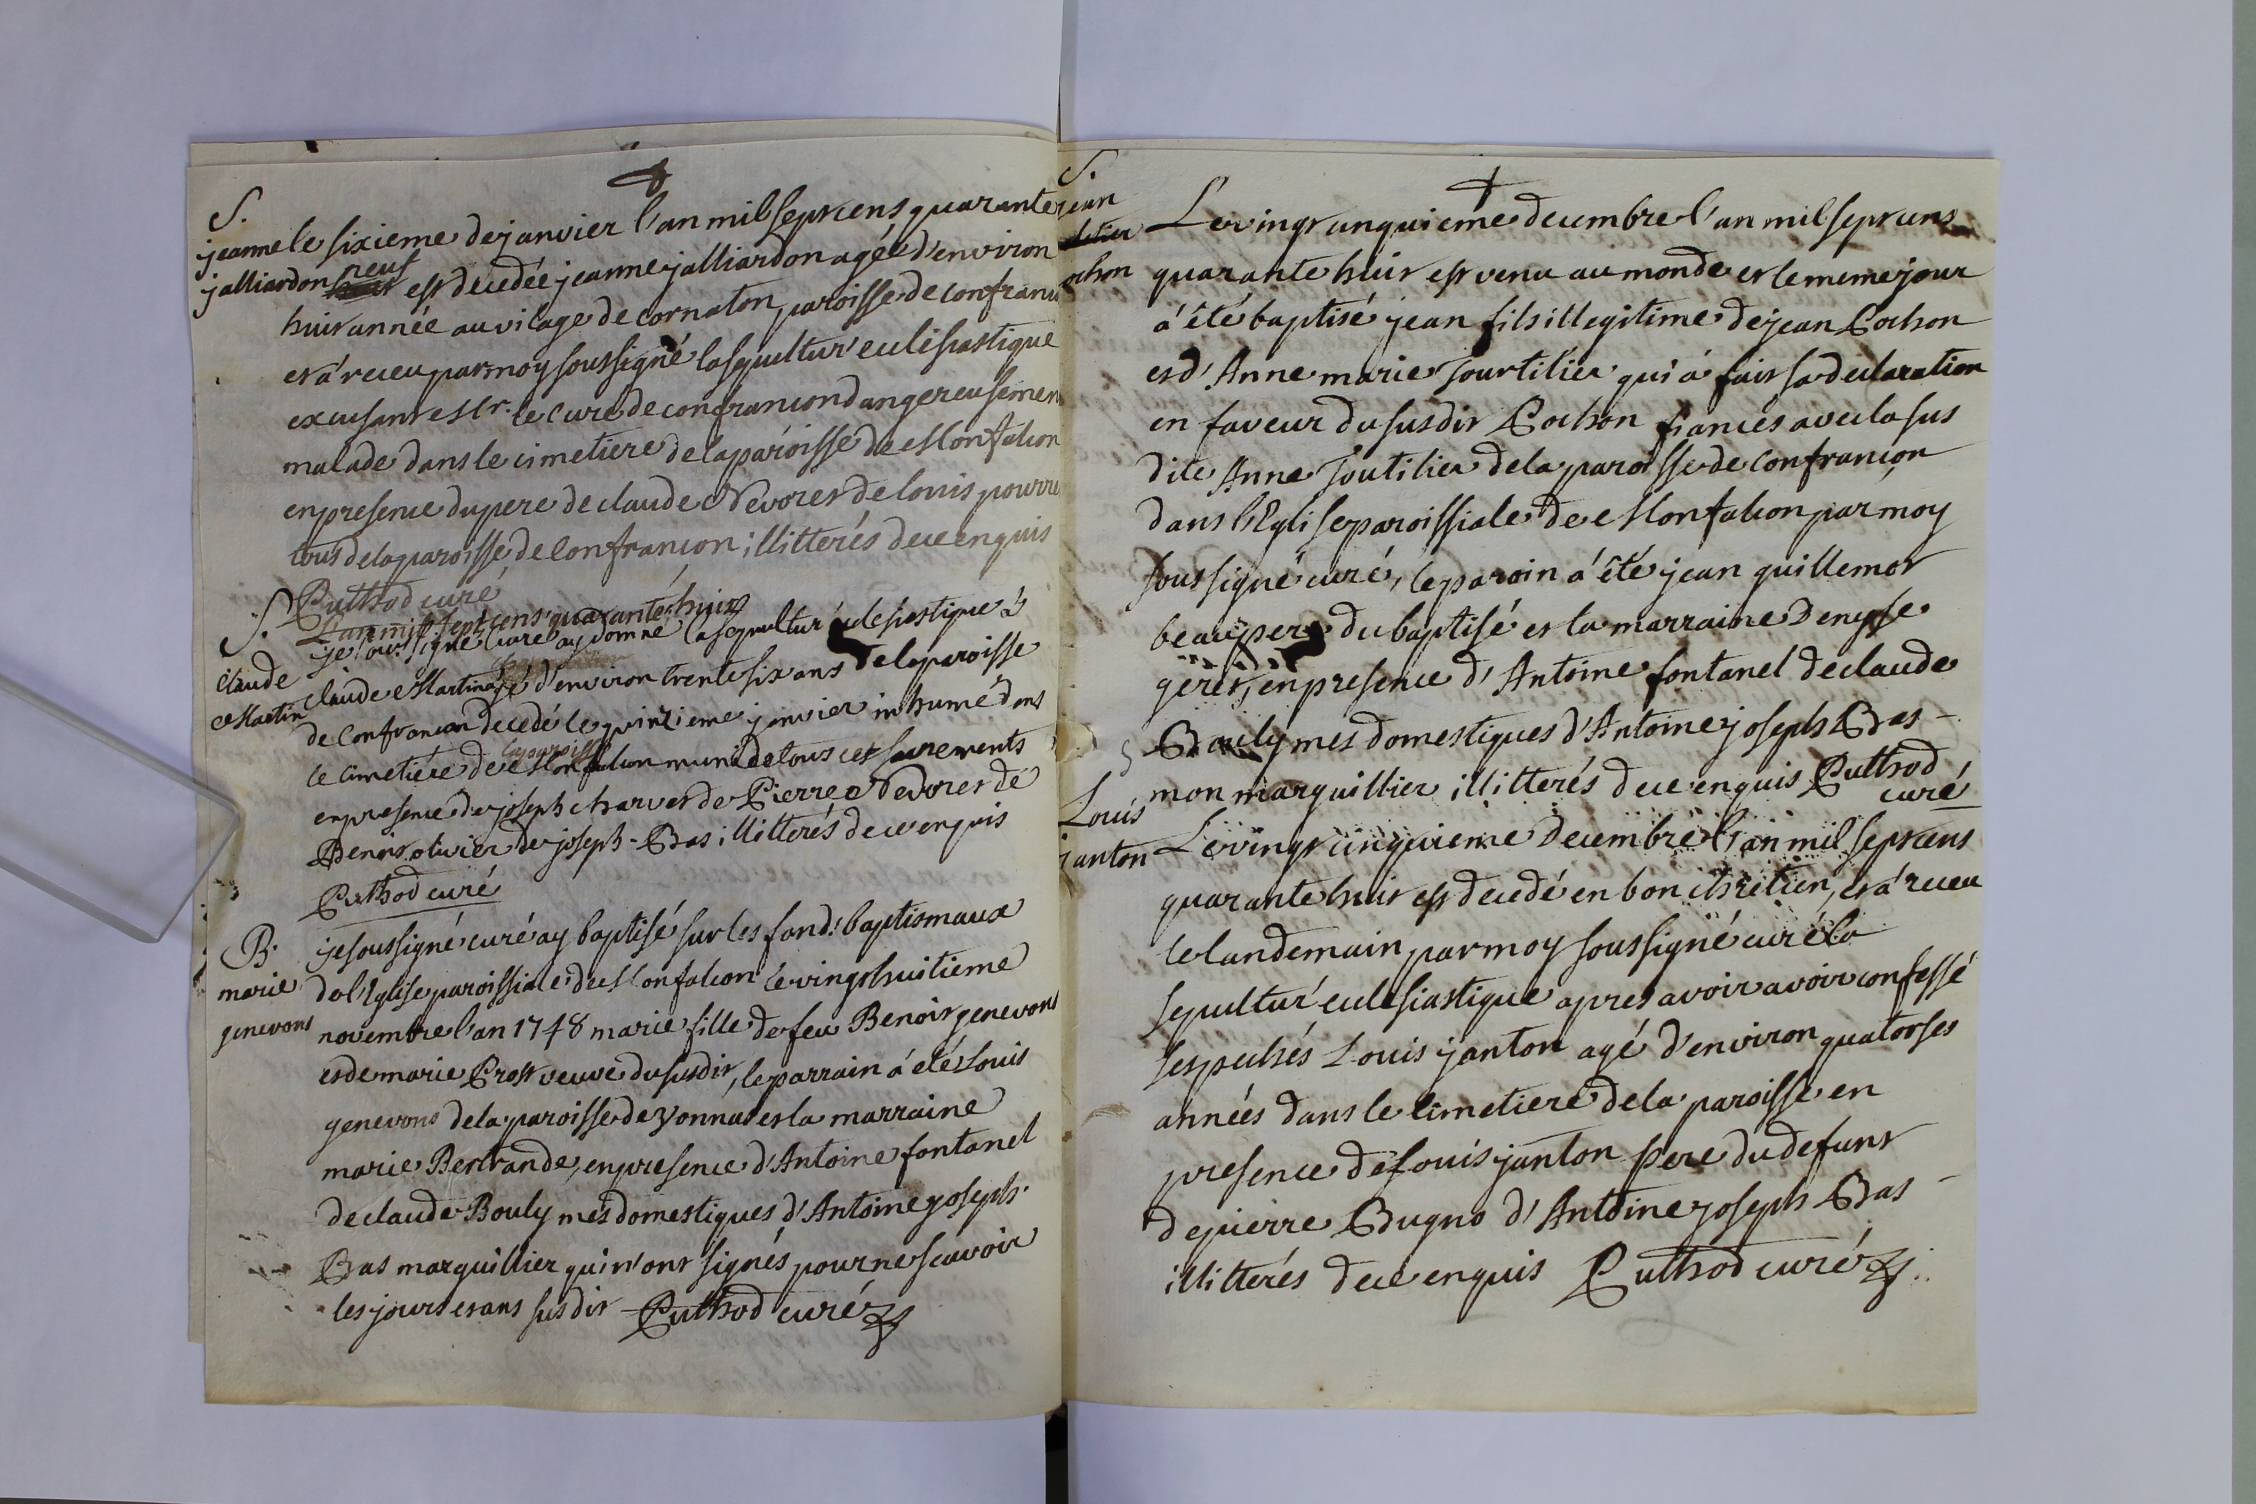 S.
jeanne
jalliardon
le sixieme de janvier l'an mil sept cens quarante
neuf
huit est decedée jeanne jalliardon agée d'environ
huit année au vilage de cornaton paroisse de confranc
et á receu par moy soussigné la sepultur' eclésiastique
excusant Mr. le curé de confrancon dangereusemen
malade dans le cimetiere de la paroisse de Monfalcon
en presence du pere de claude Nevoret de louis pourr
tous de la paroisse de Confrancon illitterés de ce enquis
Puthod curé
S.
Claude
Martin
L'an mil sept cens quarante huit
je soussigné curé ay donné la sepultur' eclesiastique á
claude Martin agé d'environ trente six ans de la paroisse
de Confrancon decedé le quinzieme janvier inhumé dans
la paroisse
le cimetiére de Monfalcon muni de tous ces sacrements
en presence de joseph charvet de Pierre Nevoret de
Benoit olivier de joseph-Bas illitterés de ce enquis
Puthod curé
B.
marie
genevons
je soussigné curé ay baptisé sur les fond: baptismaux
de l'Eglise paroissiale de Monfalcon le vingt huitieme
novembre l'an 1748 marie fille de feu Benoit genevons
et de marie Prost veuve du susdit, le parrain á eté Louis
genevons de la paroisse de vonnas et la marraine
marie Bertrande, en presence d'Antoine fontanel
de claude Bouly mes domestiques d'Antoine joseph
Bas marguillier qui n'ont signés pour ne scavoir
les jours et ans susdit Puthod curé
S.
jean
cohon
Le vingt unquieme decembre l'an mil sept cens
quarante huit est venu au monde et le meme jour
á été baptisé jean fils illegitime de jean Cochon
et d'Anne marie Tourtilier qui á fait sa declaration
en faveur du susdit Cochon fiancés avec la sus
dite Anne Toutilier de la paroisse de Confrancon
dans l'Eglise paroissiale de Monfalcon par moy
soussigné curé, le paroin á été jean guillemot
beaupere du baptisé et la marraine Denyse
geret, en presence d'Antoine fontanel de claude
Bouly mes domestiques d'Antoine joseph Bas-
mon marguillier illitterés de ce enquis Puthod
curé
S
Louis
janton
Le vingt cinquieme Decembre l'an mil sept cens
quarante huit est decedé en bon chrétien, et á receu
le landemain par moy soussigné curé la
sepultur' eclesiastique apres avoir avoir confessé
ses pechés Louis janton agé d'environ quatorses
années dans le cimetiere de la paroisse en
presence de Louis janton pere du defunt
de pierre Bugno d'Antoine joseph Bas-
illitterés de ce enquis Puthod curé